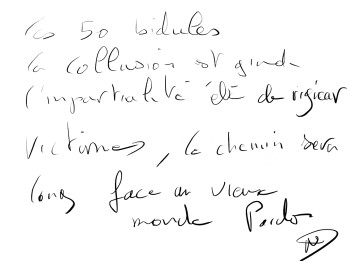 Les 50 bidules
la collusion est grande
l'impartialité été de rigueur
victimes, le chemin sera
long face au vieux
monde